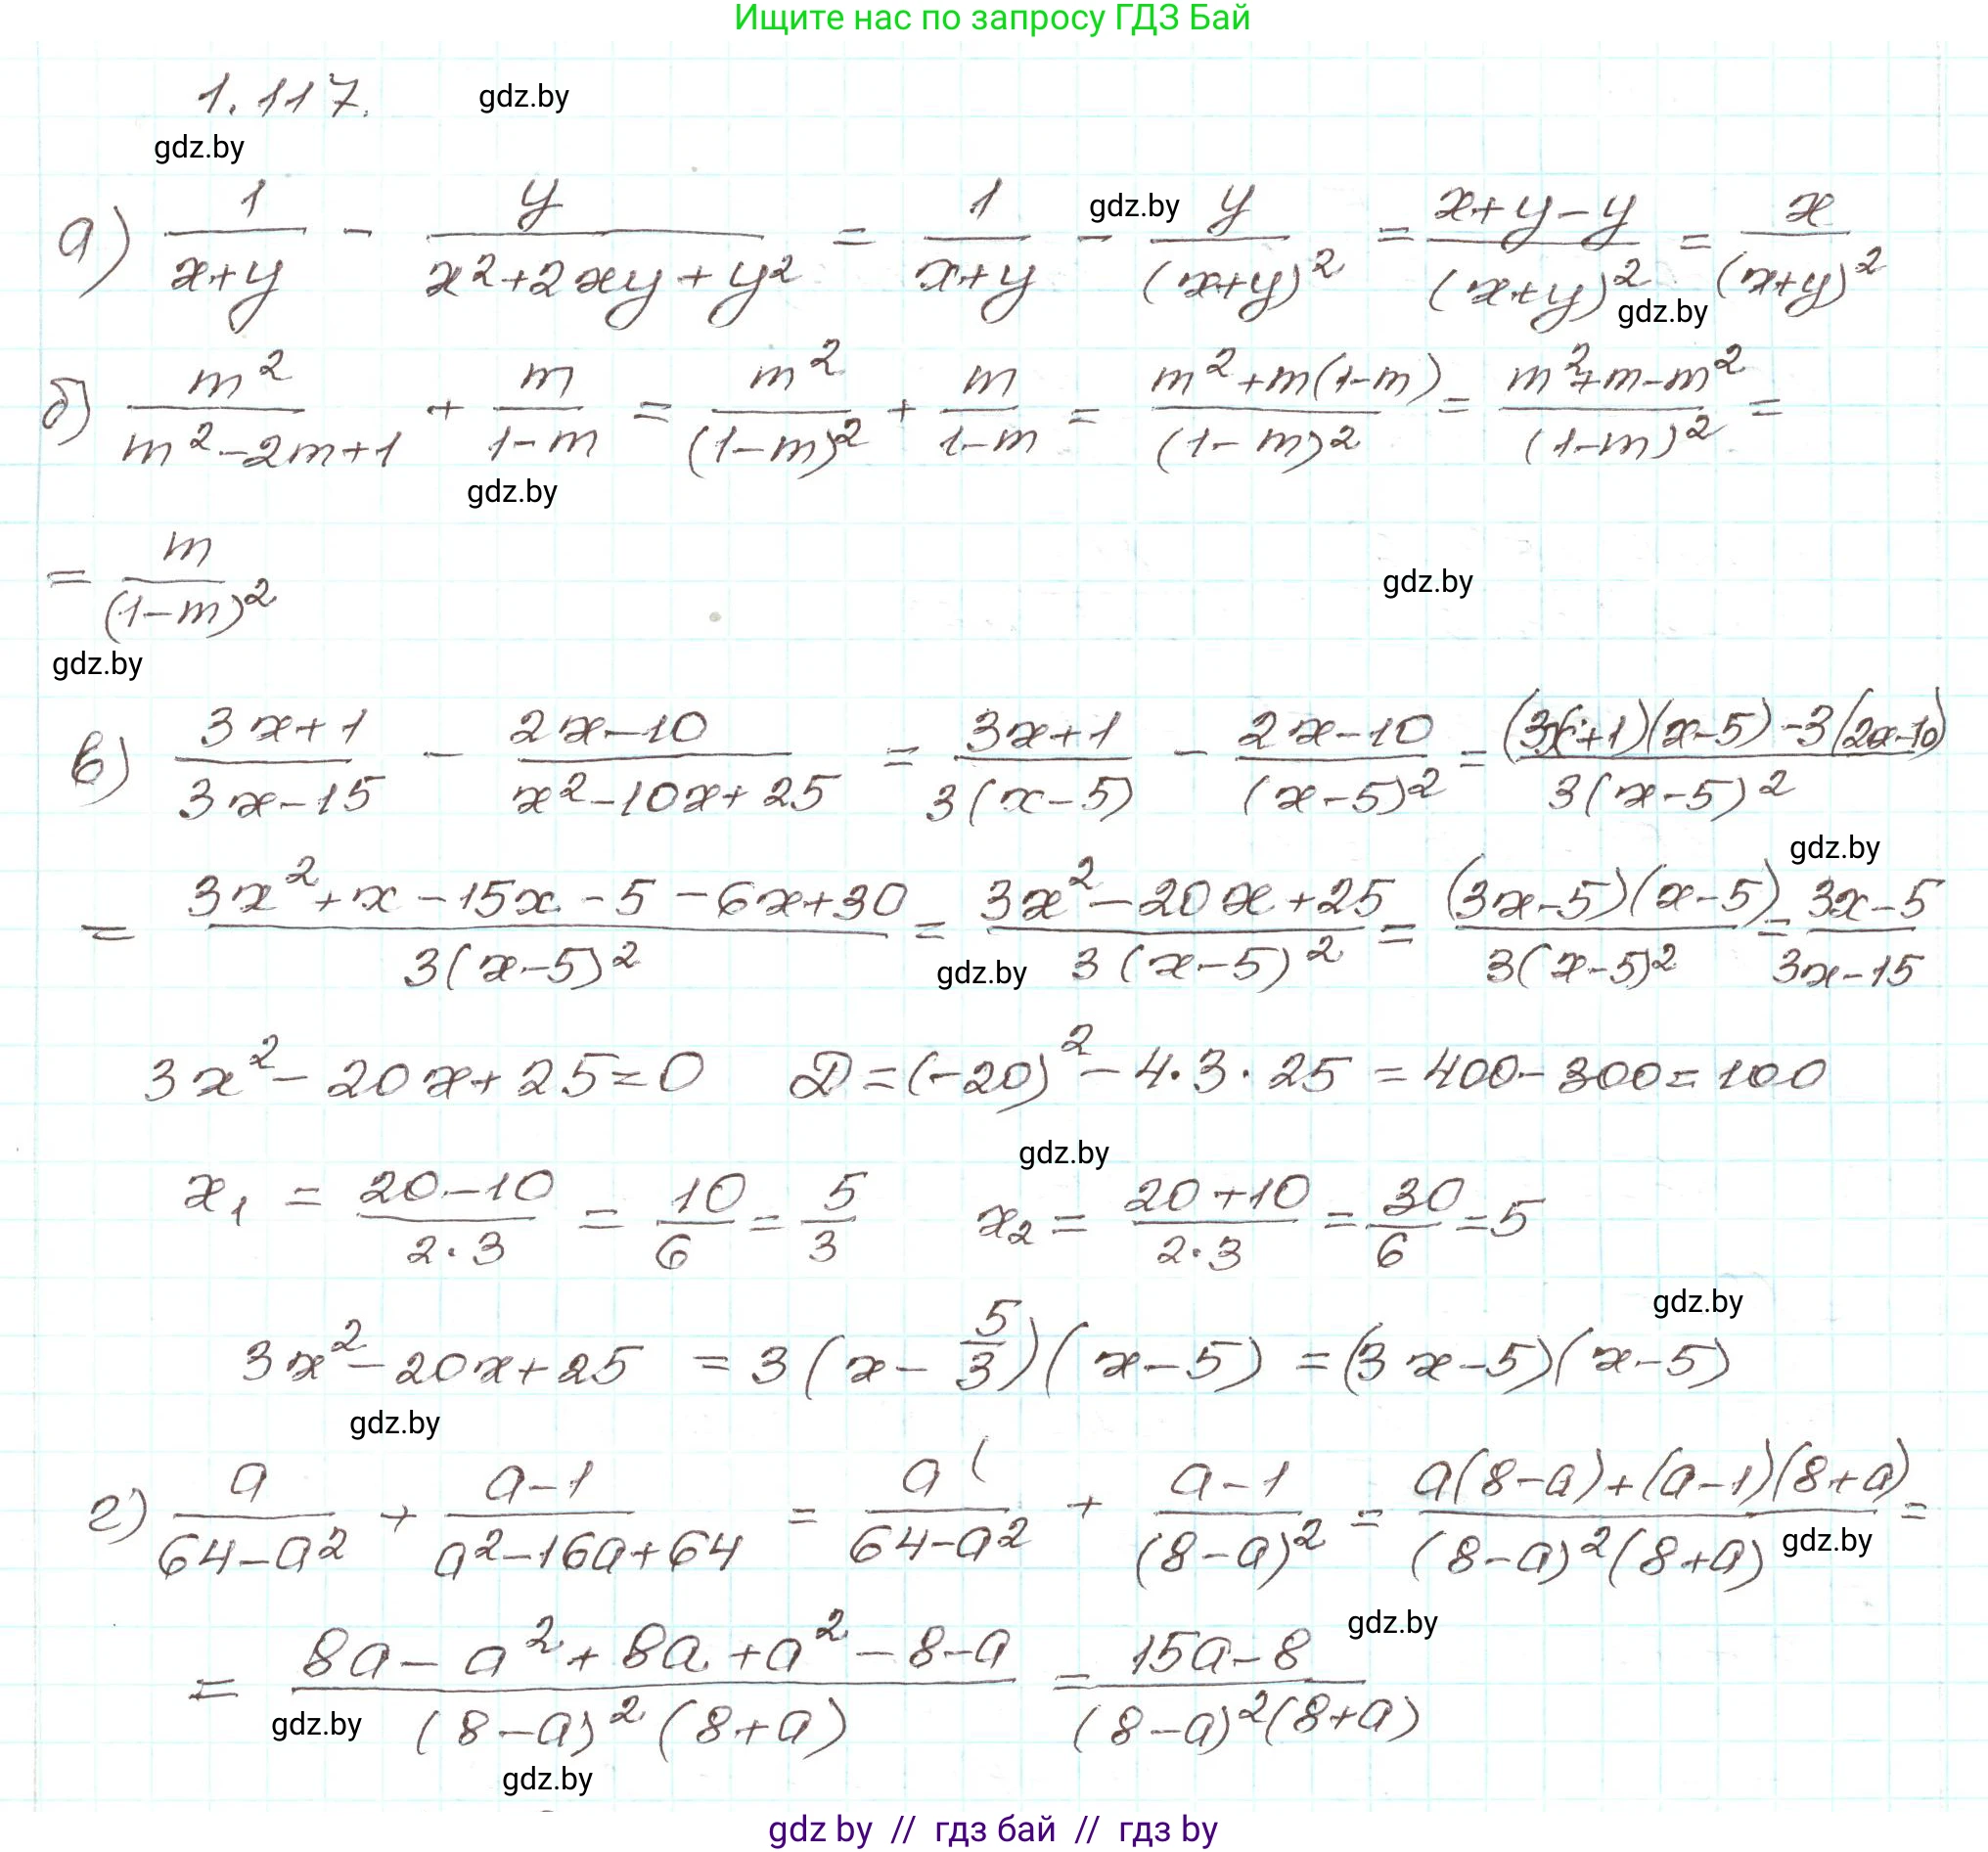 Ищите нас по запросу ГДЗ Бай
1.117. gdz.by
gdz.by
а) 1/(x+y) - y/(x²+2xy+y²) = 1/(x+y) - gdz.by y/(x+y)² = (x+y-y)/(x+y)² = x/(x+y)²
gdz.by
б) m²/(m²-2m+1) + m/(1-m) = m²/(1-m)² + m/(1-m) = (m²+m(1-m))/(1-m)² = (m²+m-m²)/(1-m)² =
gdz.by
= m/(1-m)² gdz.by
gdz.by
в) (3x+1)/(3x-15) - (2x-10)/(x²-10x+25) = (3x+1)/(3(x-5)) - (2x-10)/(x-5)² = ((3x+1)(x-5)-3(2x-10))/(3(x-5)²)
gdz.by
= (3x²+x-15x-5-6x+30)/(3(x-5)²) = (3x²-20x+25)/(3(x-5)²) = ((3x-5)(x-5))/(3(x-5)²) = (3x-5)/(3x-15)
gdz.by
3x²-20x+25=0 D=(-20)²-4·3·25=400-300=100
gdz.by
x₁ = (20-10)/(2·3) = 10/6 = 5/3 x₂ = (20+10)/(2·3) = 30/6 = 5
gdz.by
3x²-20x+25 = 3(x-5/3)(x-5) = (3x-5)(x-5)
gdz.by
г) a/(64-a²) + (a-1)/(a²-16a+64) = a(/(64-a²) + (a-1)/(8-a)² = (a(8-a)+(a-1)(8+a))/((8-a)²(8+a)) =
gdz.by
gdz.by
= (8a-a²+8a+a²-8-a)/((8-a)²(8+a)) = (15a-8)/((8-a)²(8+a))
gdz.by
gdz.by
gdz by // гдз бай // гдз by